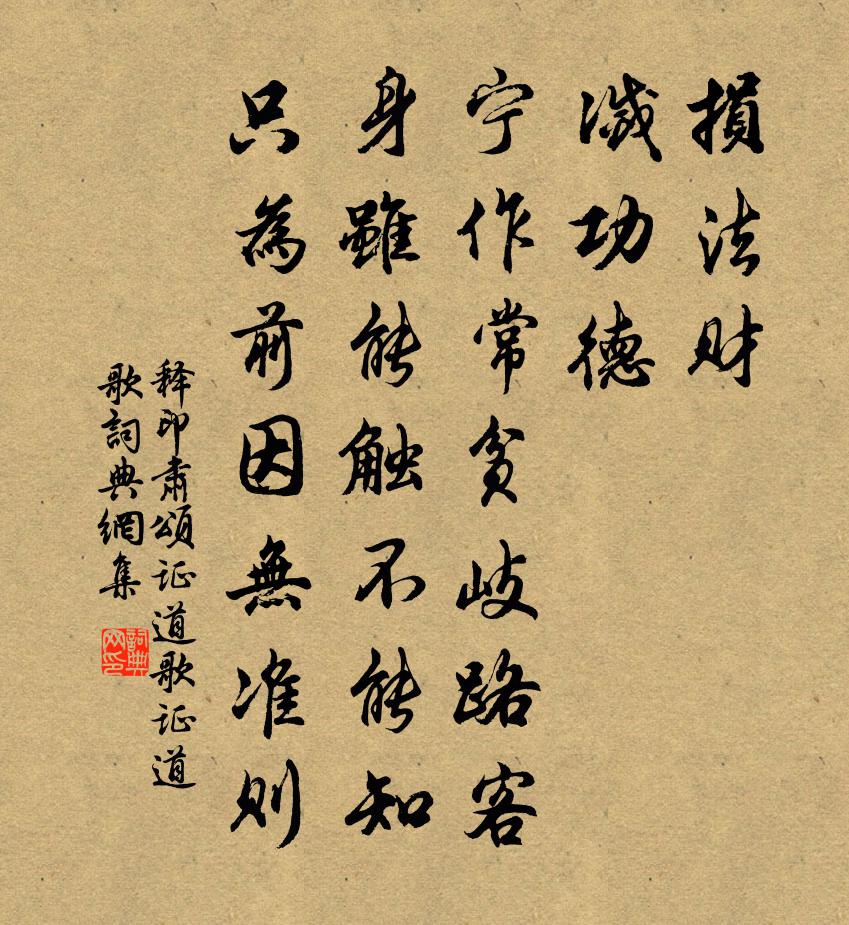 損法财
滅功德
宁作常貧岐路客
身雖能触不能知
只為前因無准则
释印肃頌证道歌证道
歌詞典網集
詞典网印